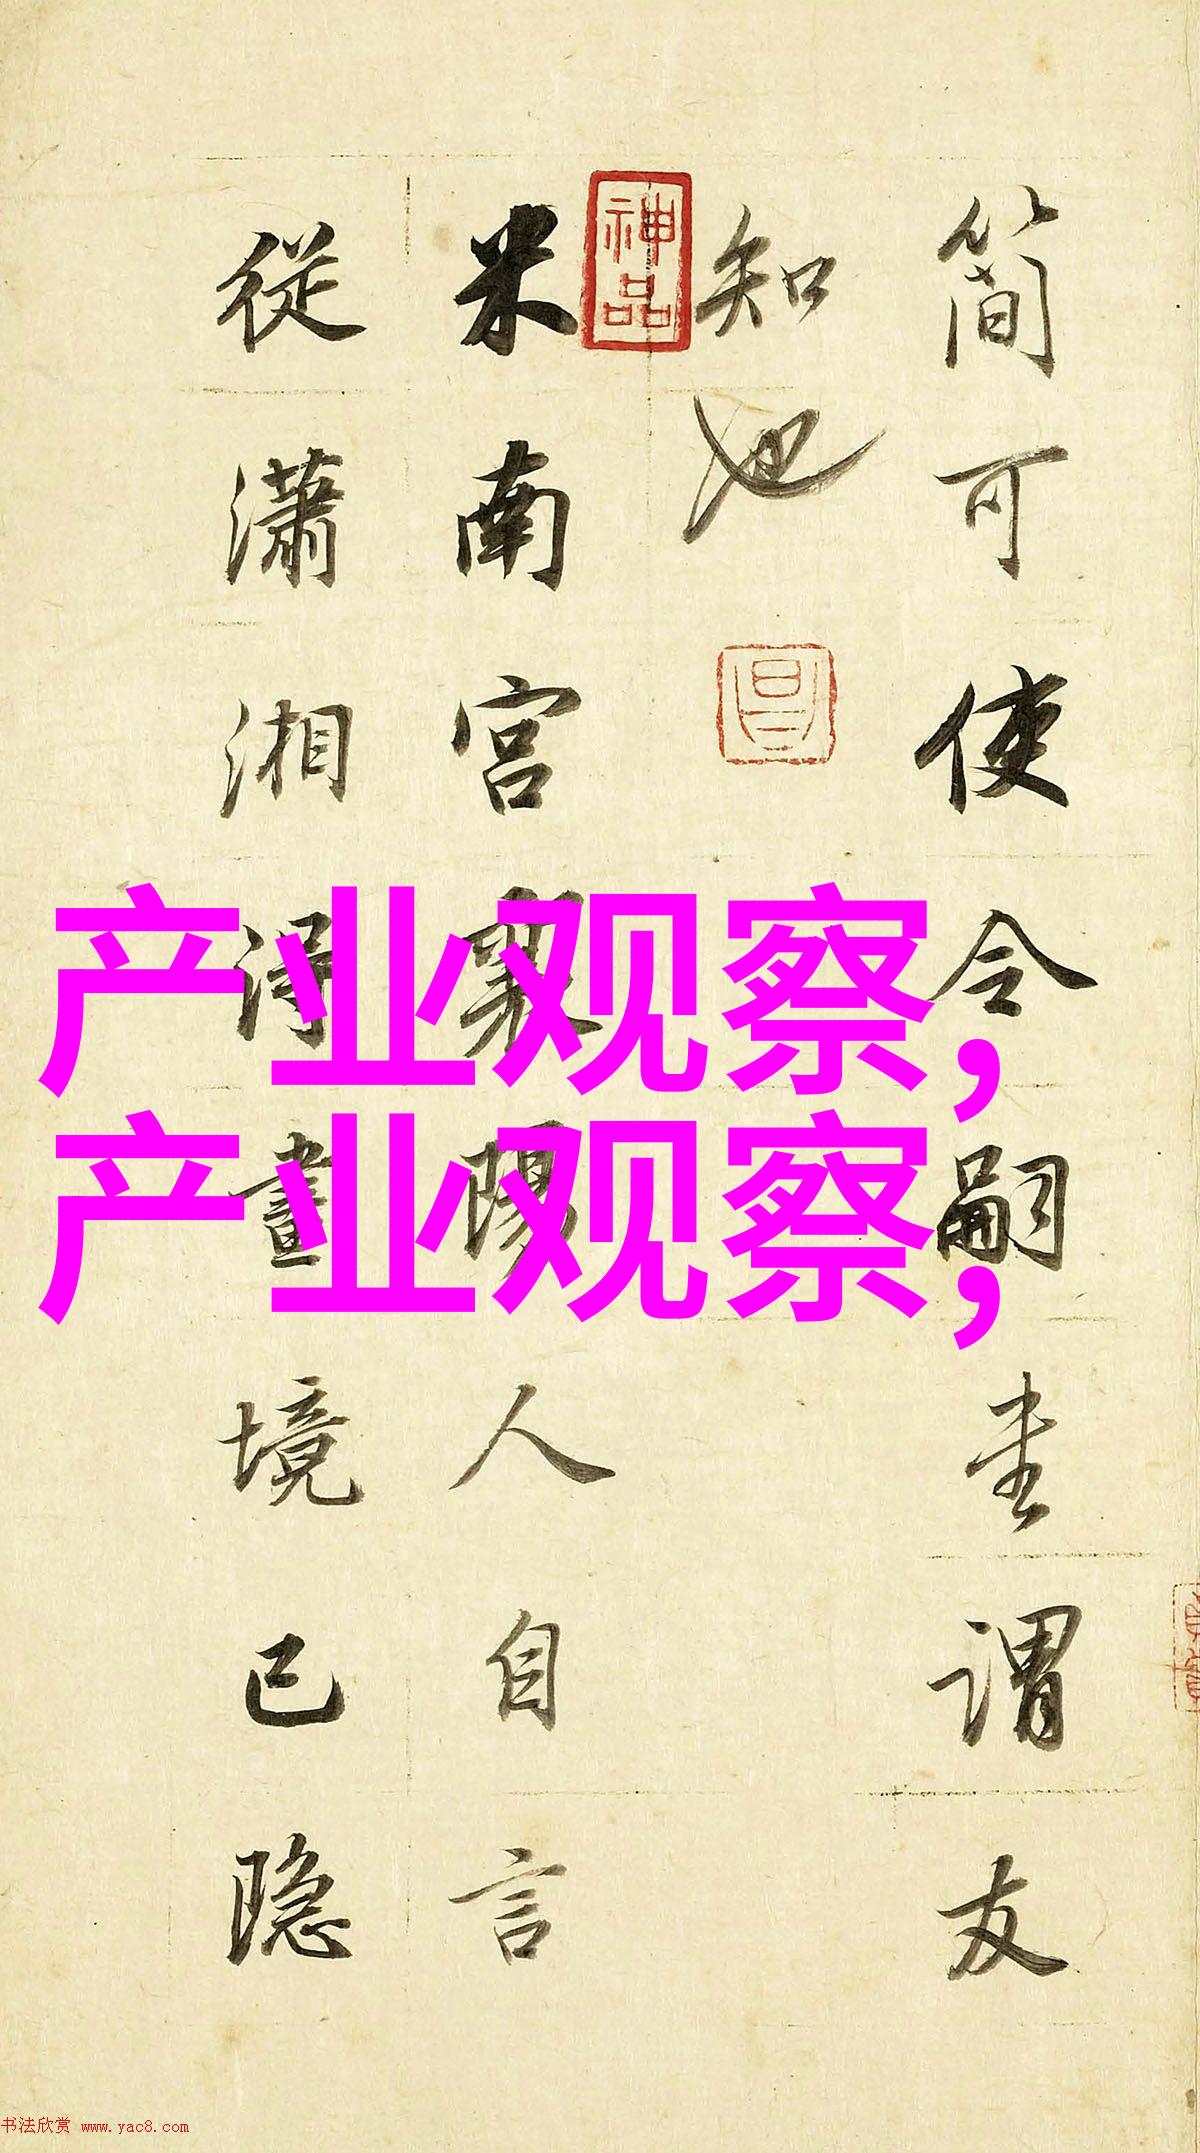 簡可使令嗣圭謂友
知也
米南宮襄陽人自言
從瀟湘得畫境已隐
神品
产业观察,
产业观察,
书法欣赏 www.yac8.com